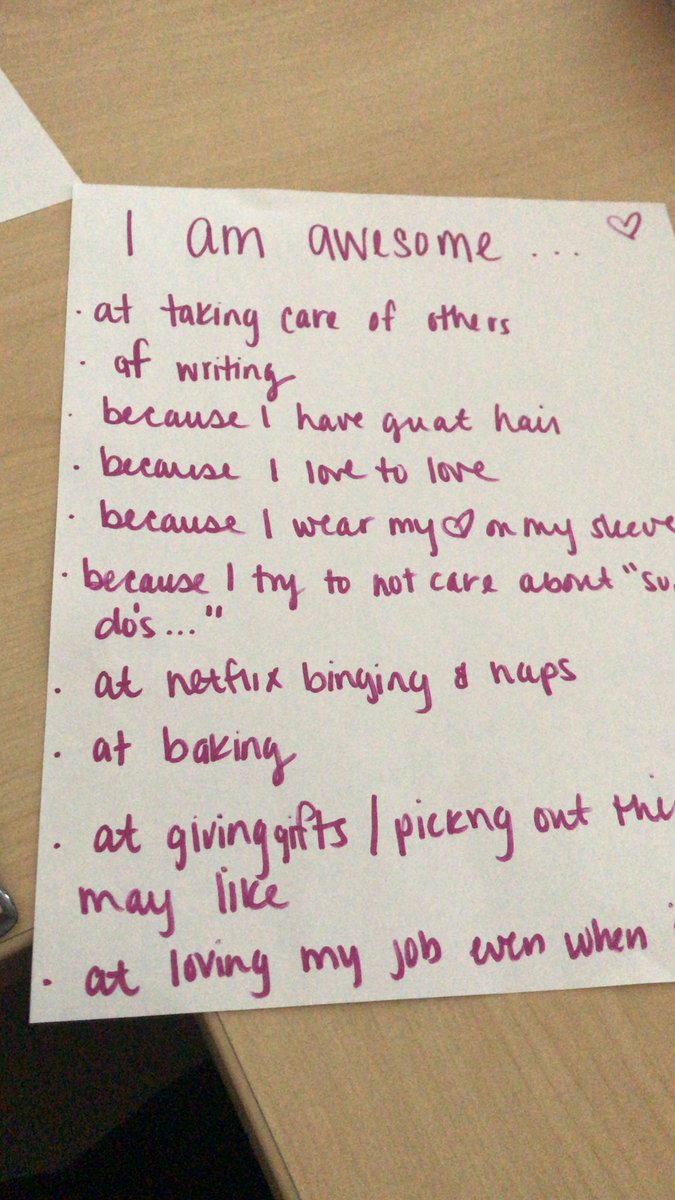 I am awesome ... ♡
· at taking care of others
· at writing
· because I have great hair
· because I love to love
· because I wear my ♡ on my sleeve
· because I try to not care about "su
do's..."
· at netflix binging & naps
· at baking
· at giving gifts / pickng out thi
may like
· at loving my job even when i